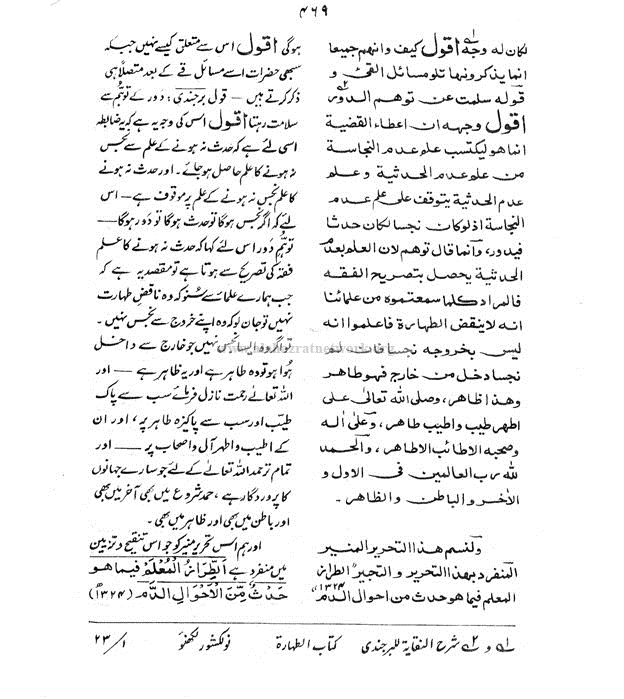 ۴۶۹
لکان لہ وجہ اقول کیف وانھم جمیعا
انما یذکرونھا تلو مسائل القیئ و
قولہ سلمت عن توھم الدور
اقول وجھہ ان اعطاء القضیۃ
انما ھو لیکتسب علم عدم النجاسۃ
من علم عدم الحدثیۃ وعلم
عدم الحدثیۃ یتوقف علی علم عدم
النجاسۃ اذ لو کان نجسا لکان حدثا
فیدور، وانما قال توھم لان العلم بعدم
الحدثیۃ یحصل بتصریح الفقہ
فالمراد کلما سمعتموہ من علمائنا
انہ لاینقض الطھارۃ فاعلموا انہ
لیس بخروجہ نجسا فان لم
نجسا دخل من خارج فھو طاھر
وھذا ظاھر، وصلی اللہ تعالیٰ علی
اطھر طیب واطیب طاھر، وعلیٰ اٰلہ
وصحبہ الاطائب الاطاھر، والحمد
للہ رب العالمین فی الاول و
الاٰخر والباطن والظاھر۔
ولنسم ھذا التحریر المنیر
المنفرد بھذا التحریر والتحبیر الطراز
المعلم فیما ھو حدث من احوال الدم ۱۳۲۴ھ
ہوگی اقول اس سے متعلق کیسے نہیں جبکہ
سبھی حضرات اسے مسائل قے کے بعد متصلاً ہی
ذکر کرتے ہیں — قول برجندی: دَور کے توہّم سے
سلامت رہتا اقول اس کی وجہ یہ ہے کہ یہ ضابطہ
اسی لئے ہے کہ حدث نہ ہونے کے علم سے نجس
نہ ہونے کا علم حاصل ہوجائے۔ اور حدث نہ ہونے
کا علم نجس نہ ہونے کے علم پر موقوف ہے — اس
لئے کہ اگر نجس ہوگا تو حدث ہوگا تو دَور ہوگا —
توہّم دَور اس لئے کہا کہ حدث نہ ہونے کا علم
فقہ کی تصریح سے ہوتا ہے تو مقصد یہ ہے کہ
جب ہمارے علماء سے سُنو کہ وہ ناقض طہارت
نہیں تو جان لو کہ وہ اپنے خروج سے نجس نہیں۔
تو اگر وہ ایسا نجس نہیں جو خارج سے داخل
ہوا ہو تو وہ طاہر ہے اور یہ ظاہر ہے — اور
اللہ تعالیٰ رحمت نازل فرمائے سب سے پاک
طیّب اور سب سے پاکیزہ طاہر پر، اور ان
کے اطیب واطہر آل واصحاب پر — اور
تمام تر حمد اللہ تعالیٰ کے لئے جو سارے جہانوں
کا پروردگار ہے، حمد شروع میں بھی آخر میں بھی
اور باطن میں بھی اور ظاہر میں بھی۔
اور ہم اس تحریر منیر کو جو اس تنقیح وتزیین
میں منفرد ہے اَلطِّرَازُ الْمُعْلَمُ فیما ھو
حَدَثٌ مِّنْ اَحْوَالِ الدَّمِ (۱۳۲۴ھ)
۱؎ و ۲؎ شرح النقایۃ للبرجندی کتاب الطہارۃ نولکشور لکھنؤ ۱/۲۳